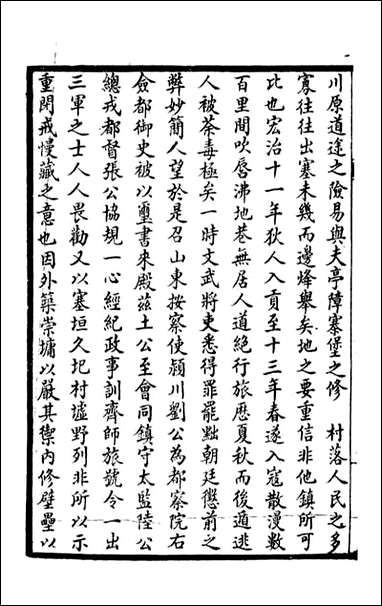 川原道途之險易與夫亭障寨堡之修　村落人民之多
寡往往出塞未幾而邊烽舉矣地之要重信非他鎮所可
比也宏治十一年狄人入貢至十三年春遂入寇散漫數
百里間吹唇沸地巷無居人道絶行旅歴夏秋而後遁逃
人被荼毒極矣一時文武將吏悉得罪罷黜朝廷懲前之
弊妙簡人望於是召山東按察使潁川劉公為都察院右
僉都御史被以璽書來殿茲土公至會同鎮守太監陸公
總戎都督張公協規一心經紀政事訓齊師旅號令一出
三軍之士人人畏勸又以塞垣久圯村墟野列非所以示
重閉戒慢藏之意也因外築崇墉以嚴其禦内修壁壘以